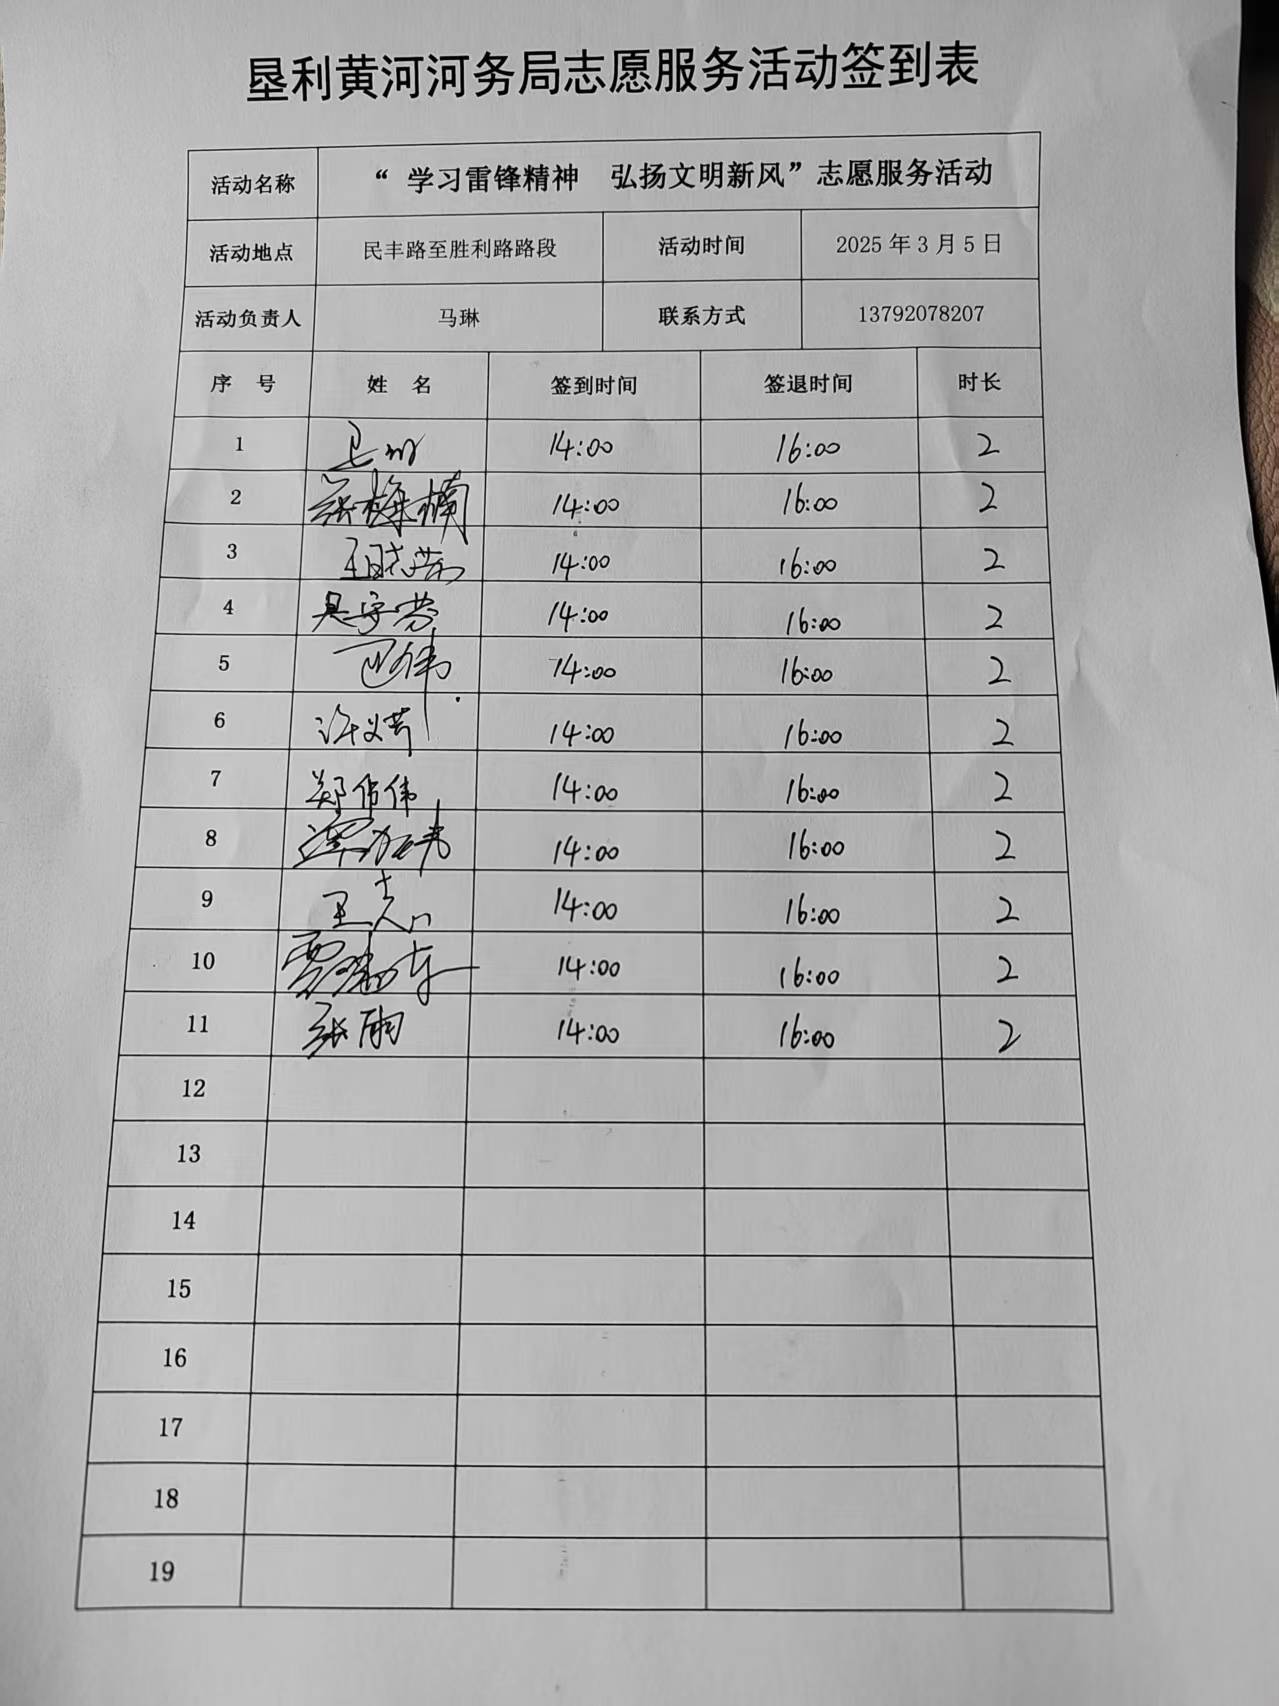 垦利黄河河务局志愿服务活动签到表
活动名称 “ 学习雷锋精神 弘扬文明新风”志愿服务活动
活动地点 民丰路至胜利路路段 活动时间 2025 年 3 月 5 日
活动负责人 马琳 联系方式 13792078207
序 号 姓 名 签到时间 签退时间 时长
1 14:00 16:00 2
2 14:00 16:00 2
3 14:00 16:00 2
4 14:00 16:00 2
5 14:00 16:00 2
6 14:00 16:00 2
7 郑伟伟 14:00 16:00 2
8 14:00 16:00 2
9 14:00 16:00 2
10 14:00 16:00 2
11 张雨 14:00 16:00 2
12
13
14
15
16
17
18
19